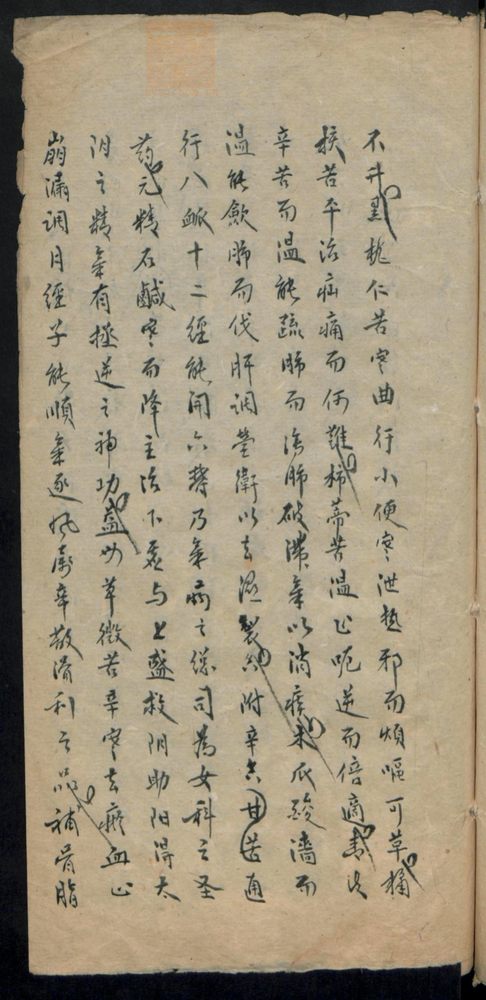 不井黑栀仁苦寒曲行小便寒泄热邪而烦嘔可草橘
核苦平治疝痛而何難柿蒂苦温止呃逆而倍適青皮
辛苦而温能疏肺而肺破滞氣以消痰木瓜酸濇而
温能歛肺而伐肝調營衛以去濕製附辛甘苦通
行八脈十二經能開六鬱乃氣病之総司為女科之圣
药元精石鹹寒而降主治下虚与上盛救阴助阳得太
阴之精氣有拯逆之神功益母草微苦辛寒去瘀血止
崩漏調月經子能順氣逐风辛散滑利之品補骨脂